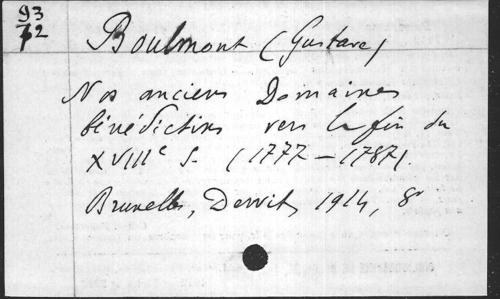 93
72
Boulmont (Gustave)
Nos anciens Domaines
bénédictins vers la fin du
XVIIIe S. (1777 – 1787).
Bruxelles, Dewit, 1914, 8°